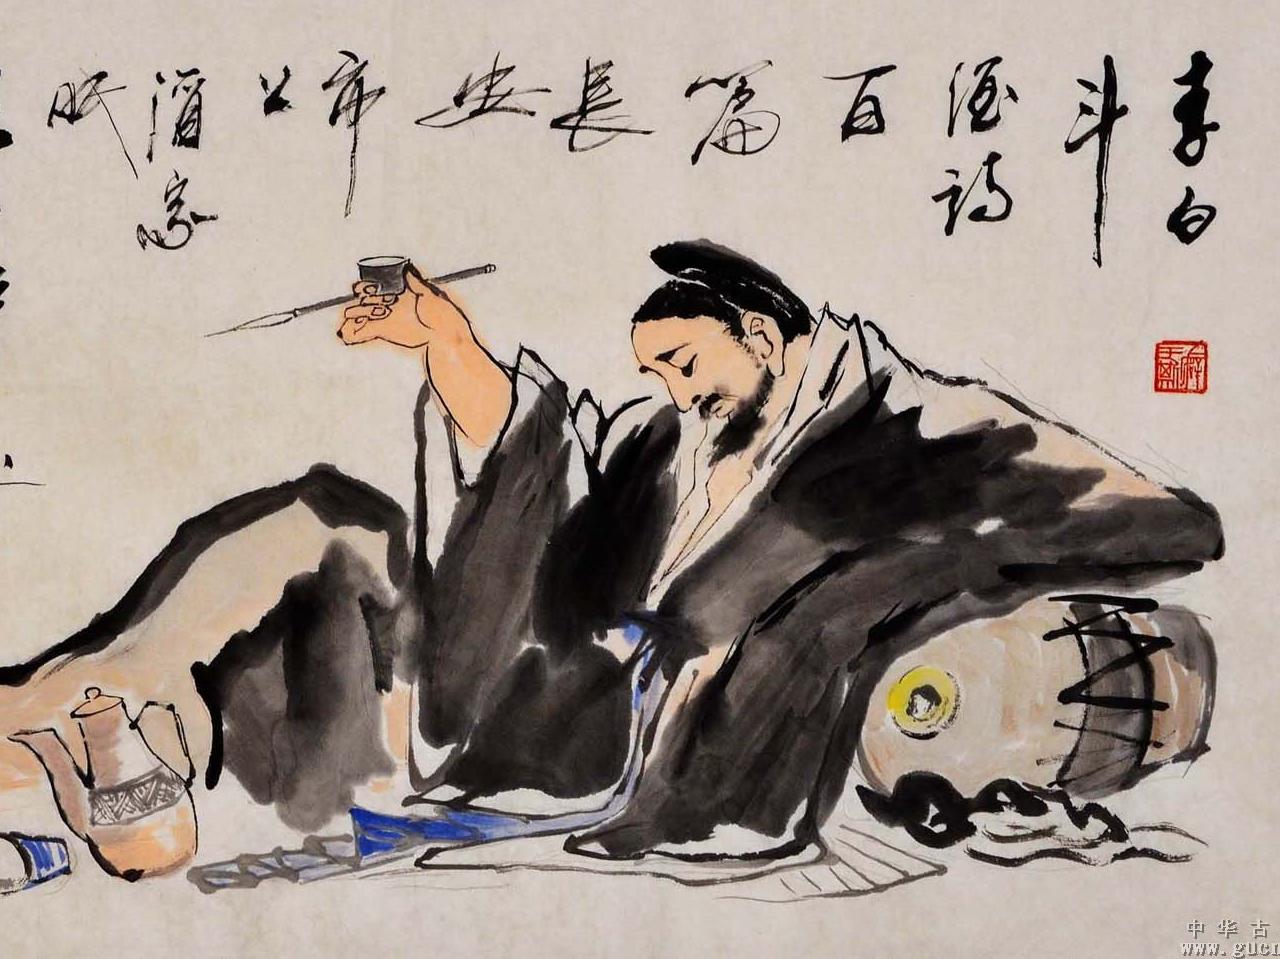 李白
斗
酒诗
百
篇
长
安
市
上
酒家
眠
中华古
www.gucn